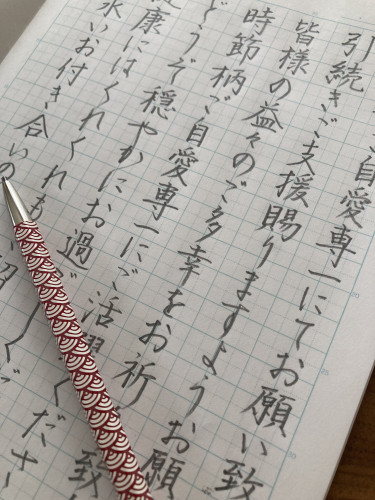 自愛専一にてお願い致
引続きご支援賜りますようお願
皆様の益々のご多幸をお祈
時節柄ご自愛専一にご活躍
どうぞ穏やかにお過
康にはくれぐれも
永いお付き合いの